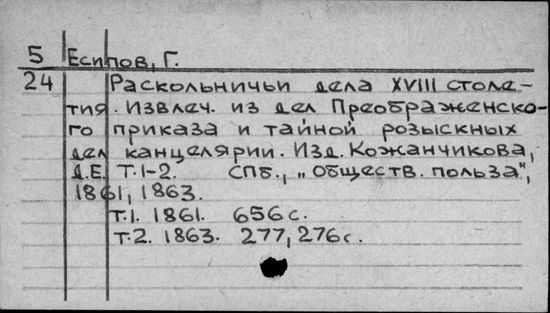 5 Есипов, Г.
24 Раскольничьи дела XVIII столе-
тия. Извлеч. из дел Преображенско-
го приказа и тайной розыскных
дел канцелярии. Изд. Кожанчикова,
Д.Е. Т.1-2. СПб., „Обществ. польза",
1861, 1863.
т.1. 1861. 656 с.
т.2. 1863. 277, 276 с.